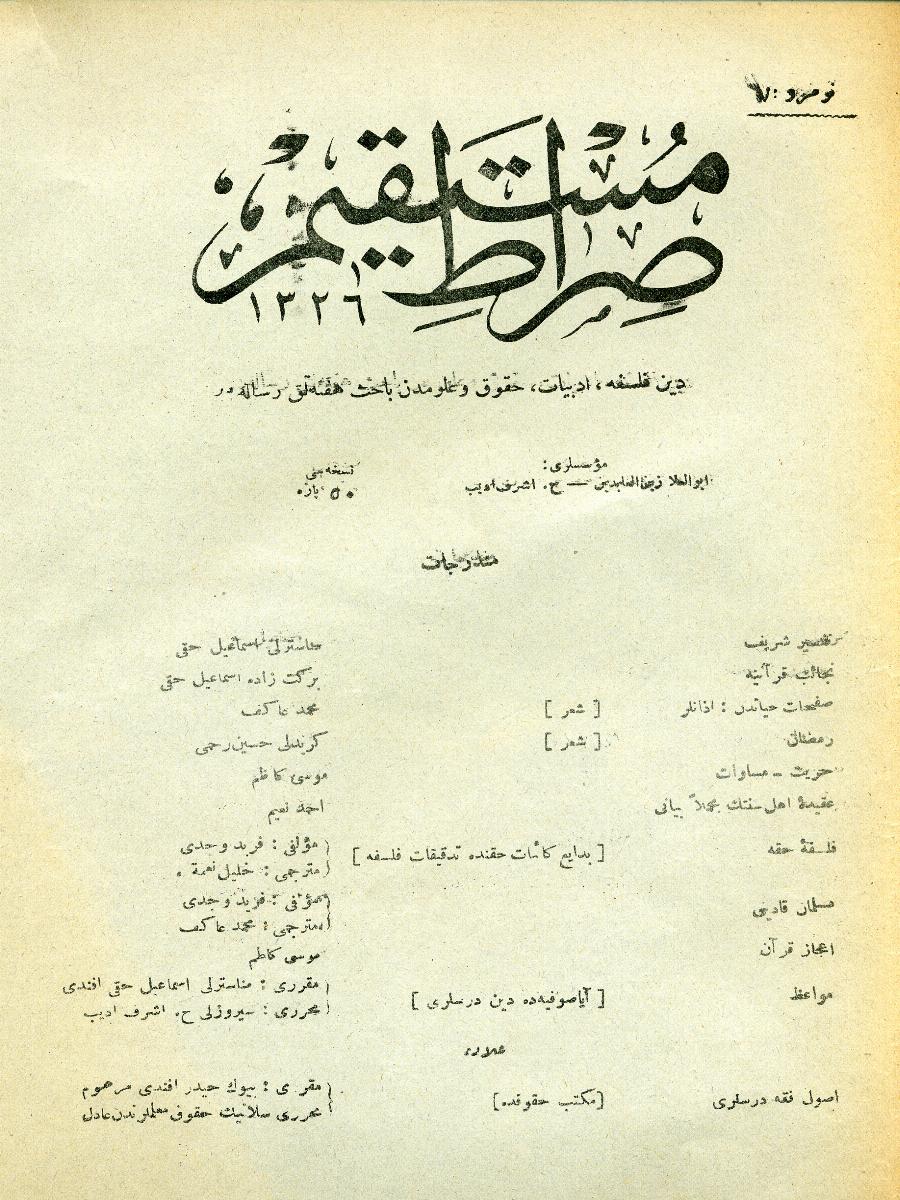 نومرو :
صراط مستقيم
١٣٢٦
دين فلسفه ، ادبيات، حقوق وعلومدن باحث هفته‌لق رساله‌در
مؤسسلرى: نسخه‌سى
ابوالعلا زين العابدين — ح. اشرف اديب ٥٠ پاره
مندرجات
تفسير شريف مناسترلى اسماعيل حقى
نجائب قرآنيه بركت زاده اسماعيل حقى
صفحات حياتدن : اذانلر [ شعر ] محمد عاكف
رمضان [ شعر ] كريدلى حسين رحمى
حريت – مساوات موسى كاظم
عقيدهٔ اهل سنتك مجملاً بيانى احمد نعيم
فلسفهٔ حقه [ بدايع كائنات حقنده تدقيقات فلسفه ] مؤلفى : فريد وجدى
مترجمى : خليل نعمة
مسلمان قادينى مؤلفى : فريد وجدى
مترجمى : محمد عاكف
اعجاز قرآن موسى كاظم
مواعظ [ آياصوفيه‌ده دين درسلرى ] مقررى : مناسترلى اسماعيل حقى افندى
محررى : سيروزلى ح. اشرف اديب
علاوه
اصول فقه درسلرى [مكتب حقوقده] مقررى : بيوك حيدر افندى مرحوم
محررى سلانيك حقوق معلملرندن عادل